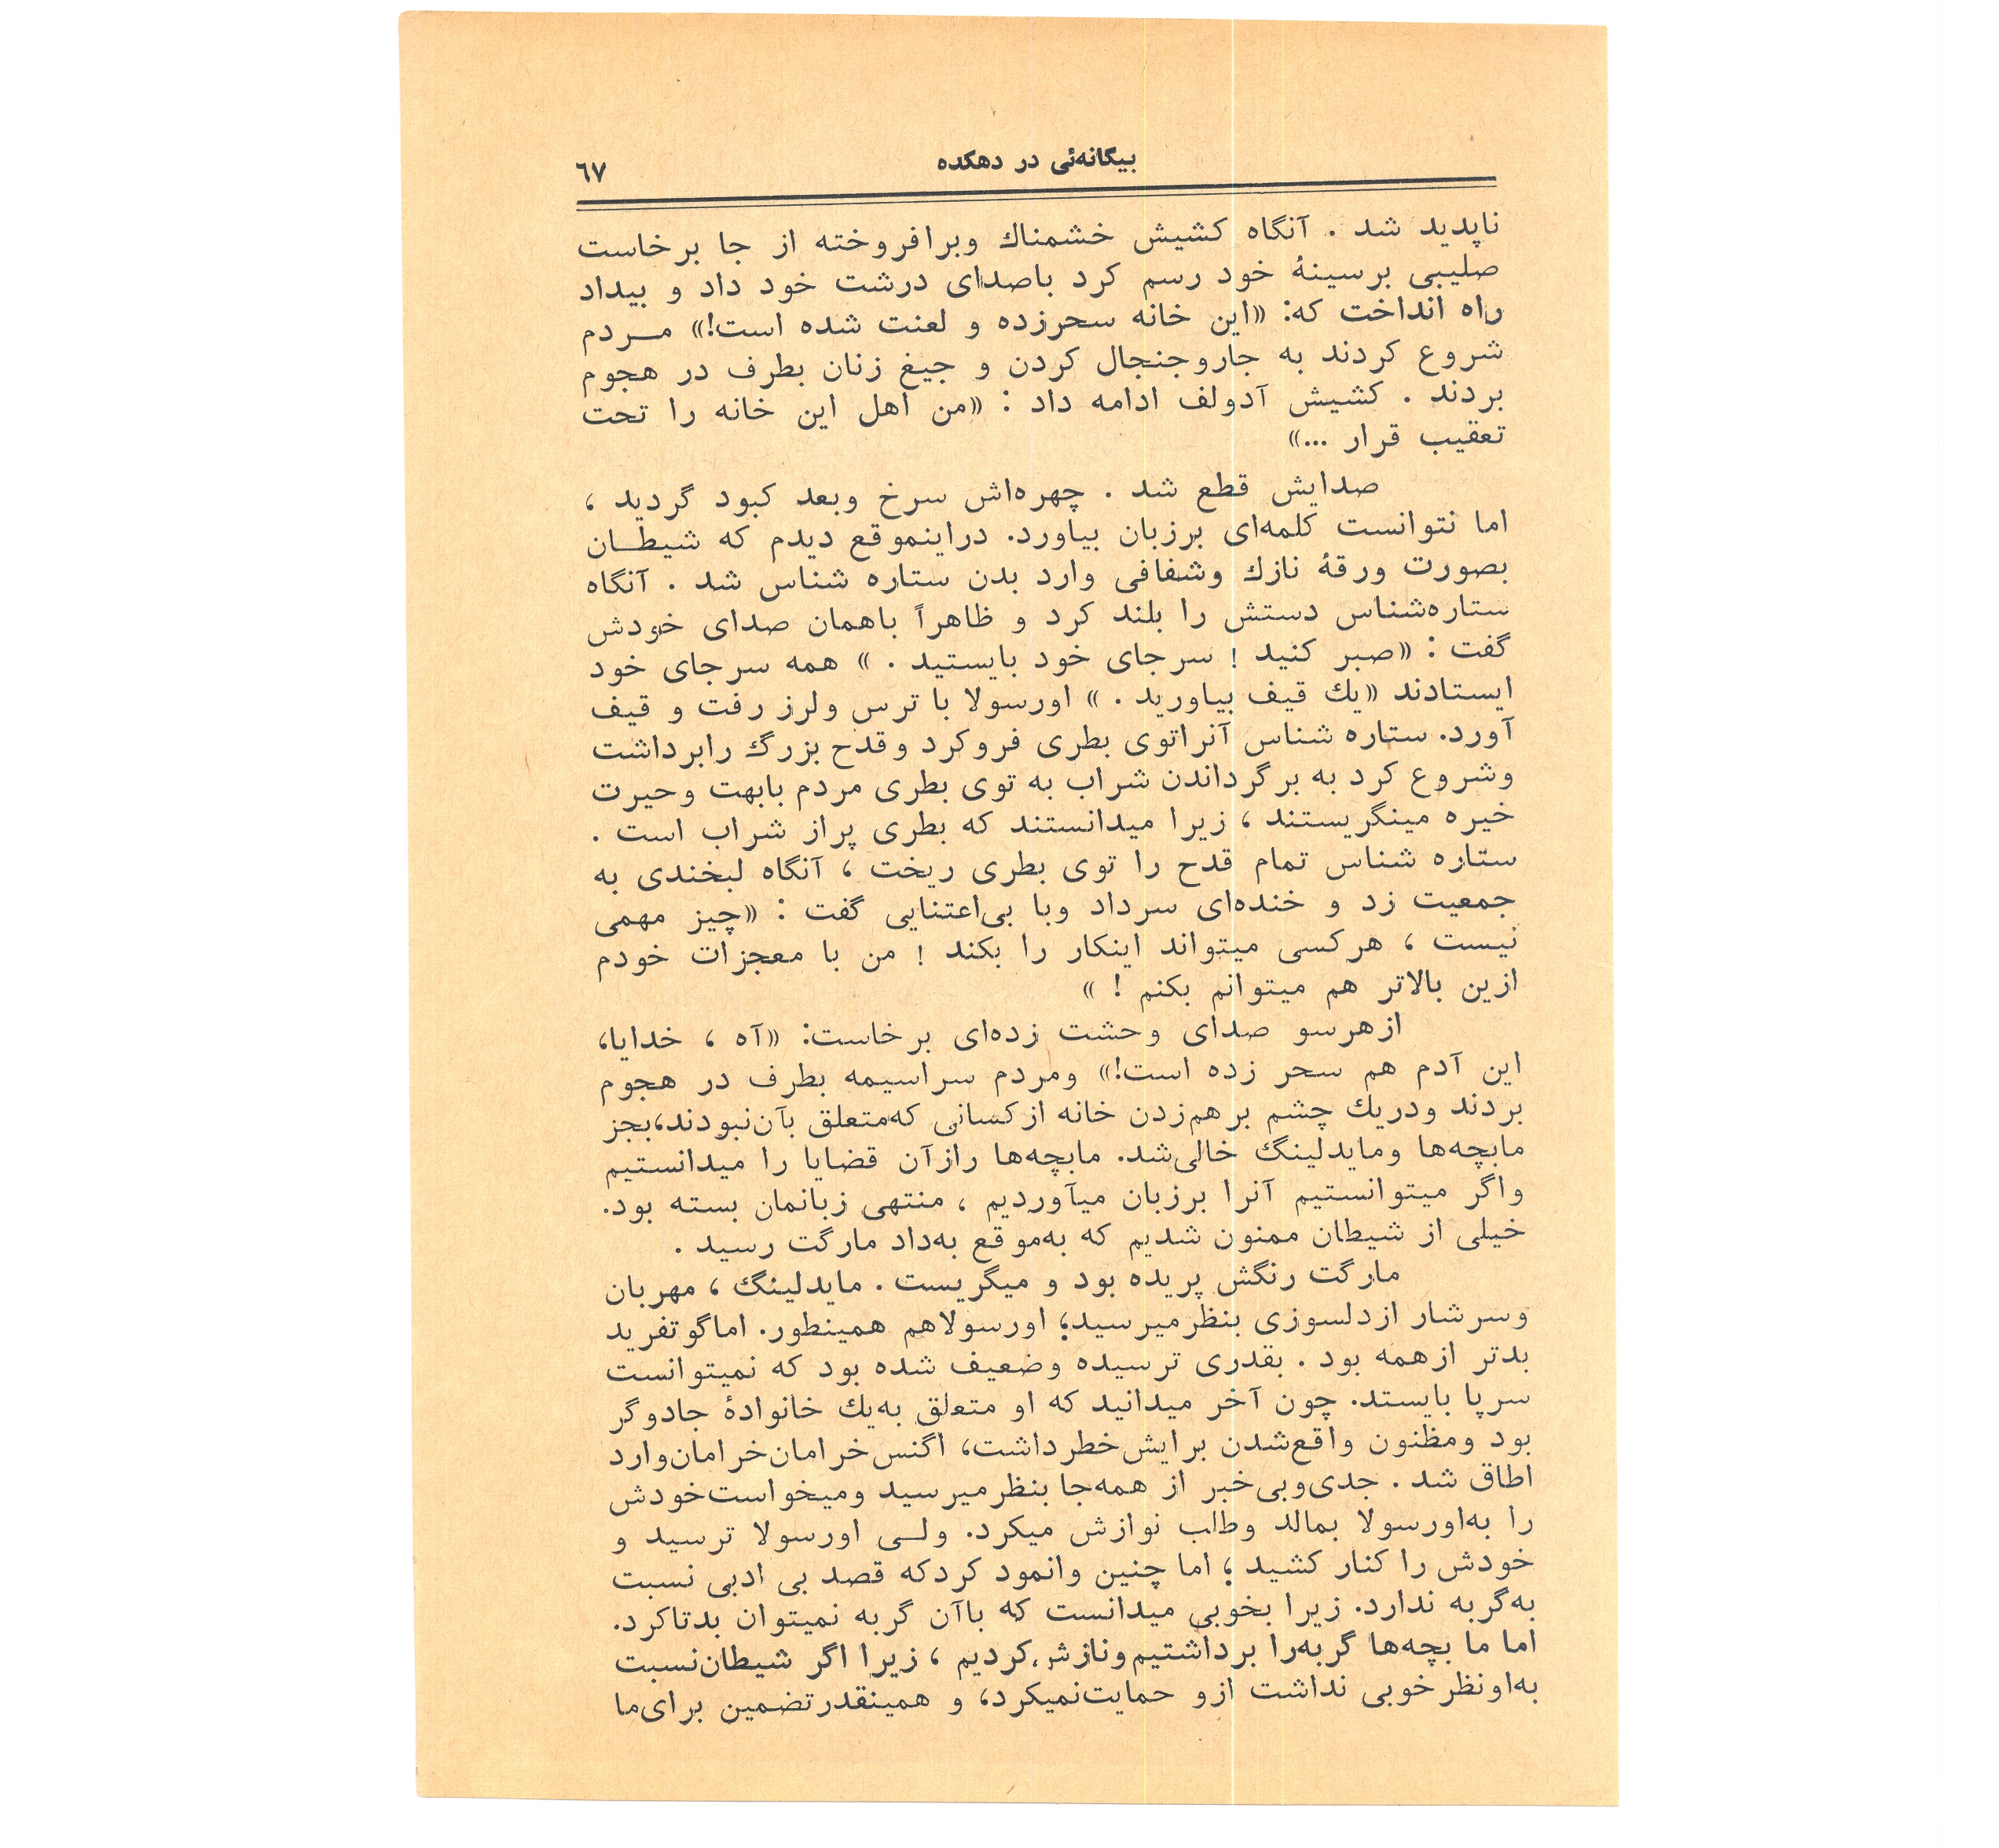 بیگانه‌ئی در دهکده
٦٧
ناپدید شد . آنگاه کشیش خشمناك وبرافروخته از جا برخاست
صلیبی برسینهٔ خود رسم کرد باصدای درشت خود داد و بیداد
راه انداخت که: «این خانه سحرزده و لعنت شده است!» مـــردم
شروع کردند به جاروجنجال کردن و جیغ زنان بطرف در هجوم
بردند . کشیش آدولف ادامه داد : «من اهل این خانه را تحت
تعقیب قرار ...»
صدایش قطع شد . چهره‌اش سرخ وبعد کبود گردید ،
اما نتوانست کلمه‌ای برزبان بیاورد. دراینموقع دیدم که شیطــان
بصورت ورقهٔ نازك وشفافی وارد بدن ستاره شناس شد . آنگاه
ستاره‌شناس دستش را بلند کرد و ظاهراً باهمان صدای خودش
گفت : «صبر کنید ! سرجای خود بایستید . » همه سرجای خود
ایستادند «یك قیف بیاورید . » اورسولا با ترس ولرز رفت و قیف
آورد. ستاره شناس آنراتوی بطری فروکرد وقدح بزرگ رابرداشت
وشروع کرد به برگرداندن شراب به توی بطری مردم بابهت وحیرت
خیره مینگریستند ، زیرا میدانستند که بطری پراز شراب است .
ستاره شناس تمام قدح را توی بطری ریخت ، آنگاه لبخندی به
جمعیت زد و خنده‌ای سرداد وبا بی‌اعتنایی گفت : «چیز مهمی
نیست ، هرکسی میتواند اینکار را بکند ! من با معجزات خودم
ازین بالاتر هم میتوانم بکنم ! »
ازهرسو صدای وحشت زده‌ای برخاست: «آه ، خدایا،
این آدم هم سحر زده است!» ومردم سراسیمه بطرف در هجوم
بردند ودریك چشم برهم‌زدن خانه ازکسانی که‌متعلق بآن‌نبودند،بجز
مابچه‌ها ومایدلینگ خالی‌شد. مابچه‌ها رازآن قضایا را میدانستیم
واگر میتوانستیم آنرا برزبان میآوردیم ، منتهی زبانمان بسته بود.
خیلی از شیطان ممنون شدیم که به‌موقع به‌داد مارگت رسید .
مارگت رنگش پریده بود و میگریست . مایدلینگ ، مهربان
وسرشار ازدلسوزی بنظرمیرسید؛ اورسولاهم همینطور. اماگوتفرید
بدتر ازهمه بود . بقدری ترسیده وضعیف شده بود که نمیتوانست
سرپا بایستد. چون آخر میدانید که او متعلق به‌یك خانوادهٔ جادوگر
بود ومظنون واقع‌شدن برایش‌خطرداشت، اگنس‌خرامان‌خرامان‌وارد
اطاق شد . جدی‌وبی‌خبر از همه‌جا بنظرمیرسید ومیخواست‌خودش
را به‌اورسولا بمالد وطالب نوازش میکرد. ولــی اورسولا ترسید و
خودش را کنار کشید ؛ اما چنین وانمود کردکه قصد بی ادبی نسبت
به‌گربه ندارد. زیرا بخوبی میدانست که باآن گربه نمیتوان بدتاکرد.
اما ما بچه‌ها گربه‌را برداشتیم‌ونازش‌کردیم ، زیرا اگر شیطان‌نسبت
به‌اونظرخوبی نداشت ازو حمایت‌نمیکرد، و همینقدرتضمین برای‌ما